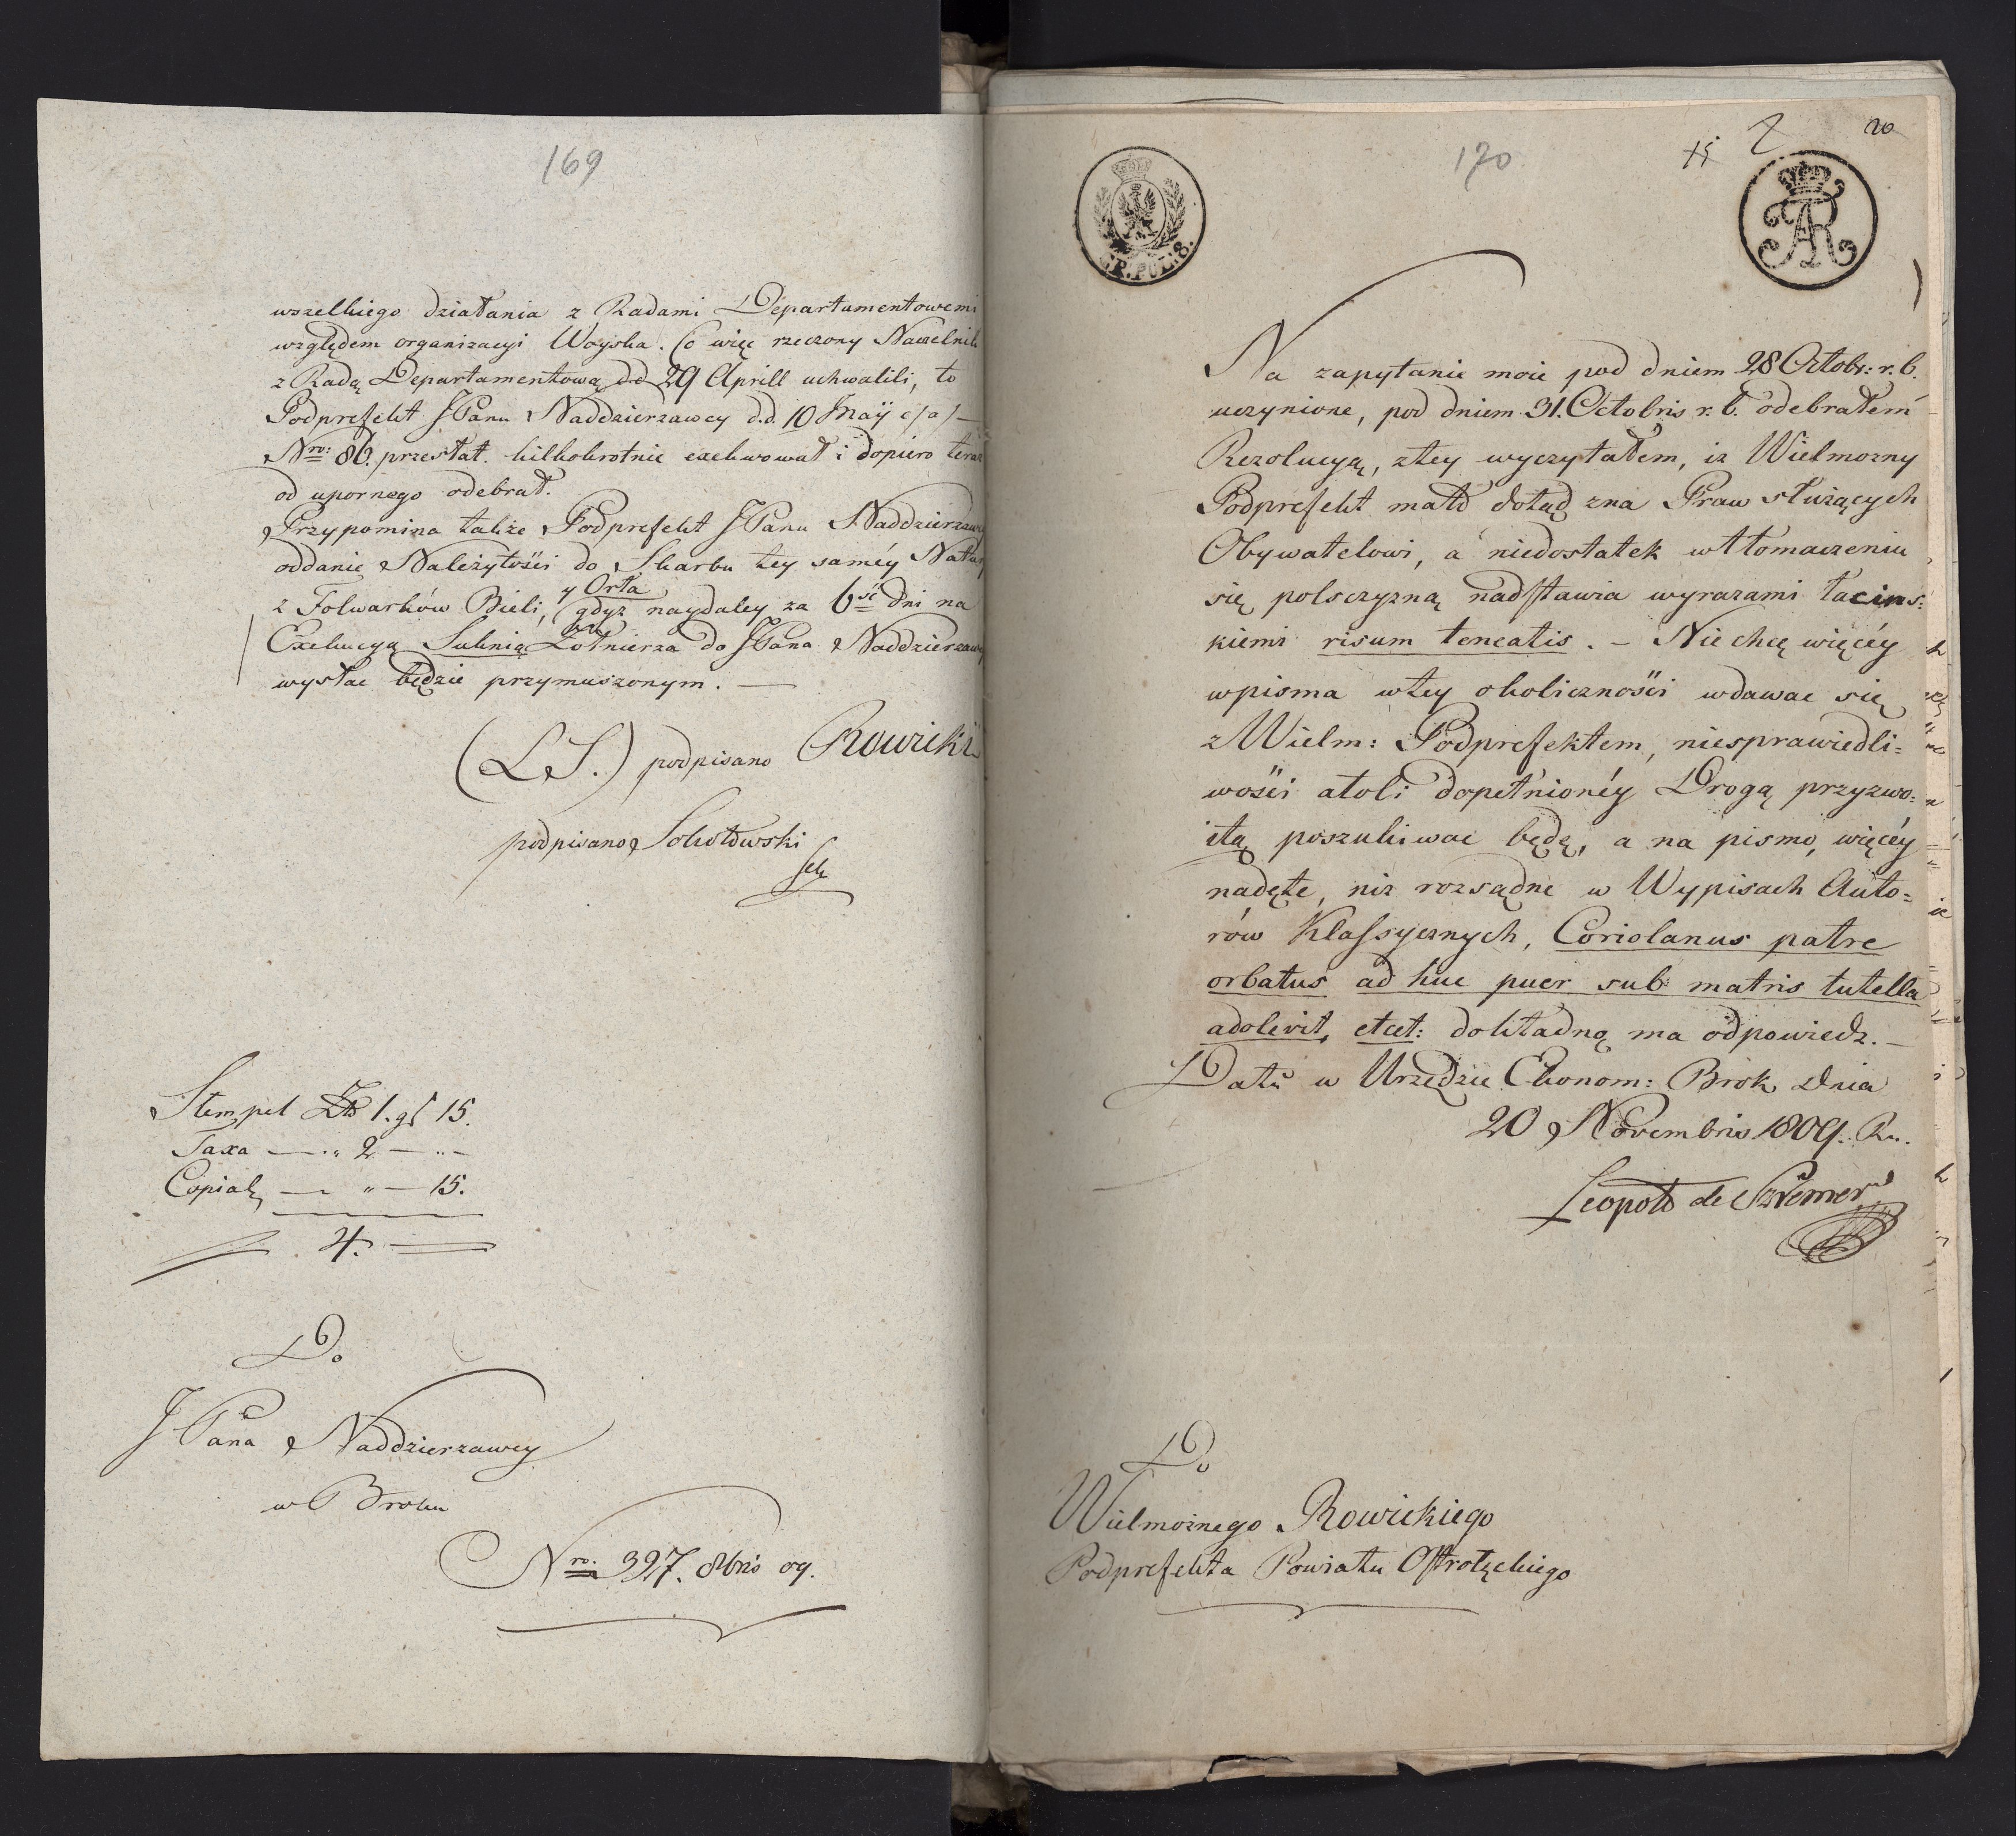 169
wszelkiego działania z Radami Departamentowemi
względem organizacyi Woyska. Co więc rzeczony Naczelnik
z Radą Departamentową d.d 29 Aprill uchwalili, to
Podprefekt JPanu Naddzierzawcy d.d. 10 Maÿ c/a/ —
Nro: 86. przesłał. kilkokrotnie exekwował i dopiero teraz
od upornego odebrał.
Przypomina także Podprefekt JPanu Naddzierzawcy
oddanie Należytości do Skarbu tey saméy Natury
z Folwarków Bieli, y Orła gdyz naydaley za 6ść dni na
Exekucyą Zołnierza do JPana Naddzierzawcy
wysłac będzie przymuszonym. —
(L.S.) podpisano Rowicki
podpisano Sokołowski
Sek
Stempel Zło 1. gl 15.
Taxa — .. 2 — .. —
Copial — " — 15.
4. —
Do
JPana Naddzierzawcy
w Broku
Nro. 397. 8bris 09.
170
15
2
20
GR. POL: 8.
FAR
Na zapytanie moie pod dniem 28 Octobr: r. b.
uczynione, pod dniem 31. Octobris r. b. odebrałem
Rezolucyą, z tey wyczytałem, iz Wielmozny
Podprefekt mało dotąd zna Praw służących
Obywatelowi, a niedostatek w tłomaczeniu
się polsczyzną nadstawia wyrazami łacins:
kiemi risum teneatis. — Nie chcę więcéy
w pisma w tey okoliczności wdawac się
z Wielm: Podprefektem, niesprawiedli=
wości atoli dopełnionéy Drogą przyzwo=
itą poszukiwac będę, a na pismo, więcéy
nadęte, niz rozsądne w Wypisach Auto=
rów Klassycznych, Coriolanus patre
orbatus ad huc puer sub matris tutella
adolevit, etcet: dokładną ma odpowiedz. —
Datū w Urzędzie Ekonom: Brok Dnia
20 Novembris 1809. Ru.
Leopold de
Do
Wielmoznego Rowickiego
Podprefekta Powiatu Ostrołęckiego